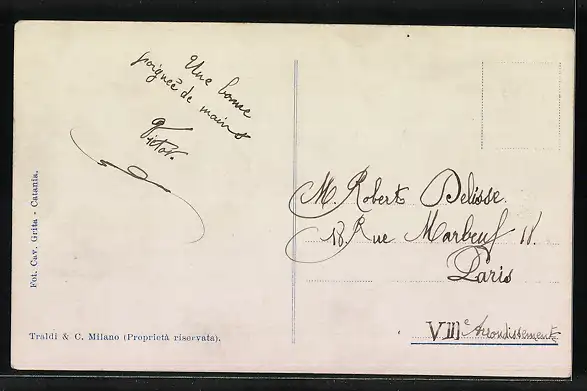 Une bonne
poignée de mains
Victor.
M. Robert Delisse.
18. Rue Marbeuf 18.
Paris
VIIIe Arrondissement
Fot. Cav. Grita - Catania.
Traldi & C. Milano (Proprietà riservata).